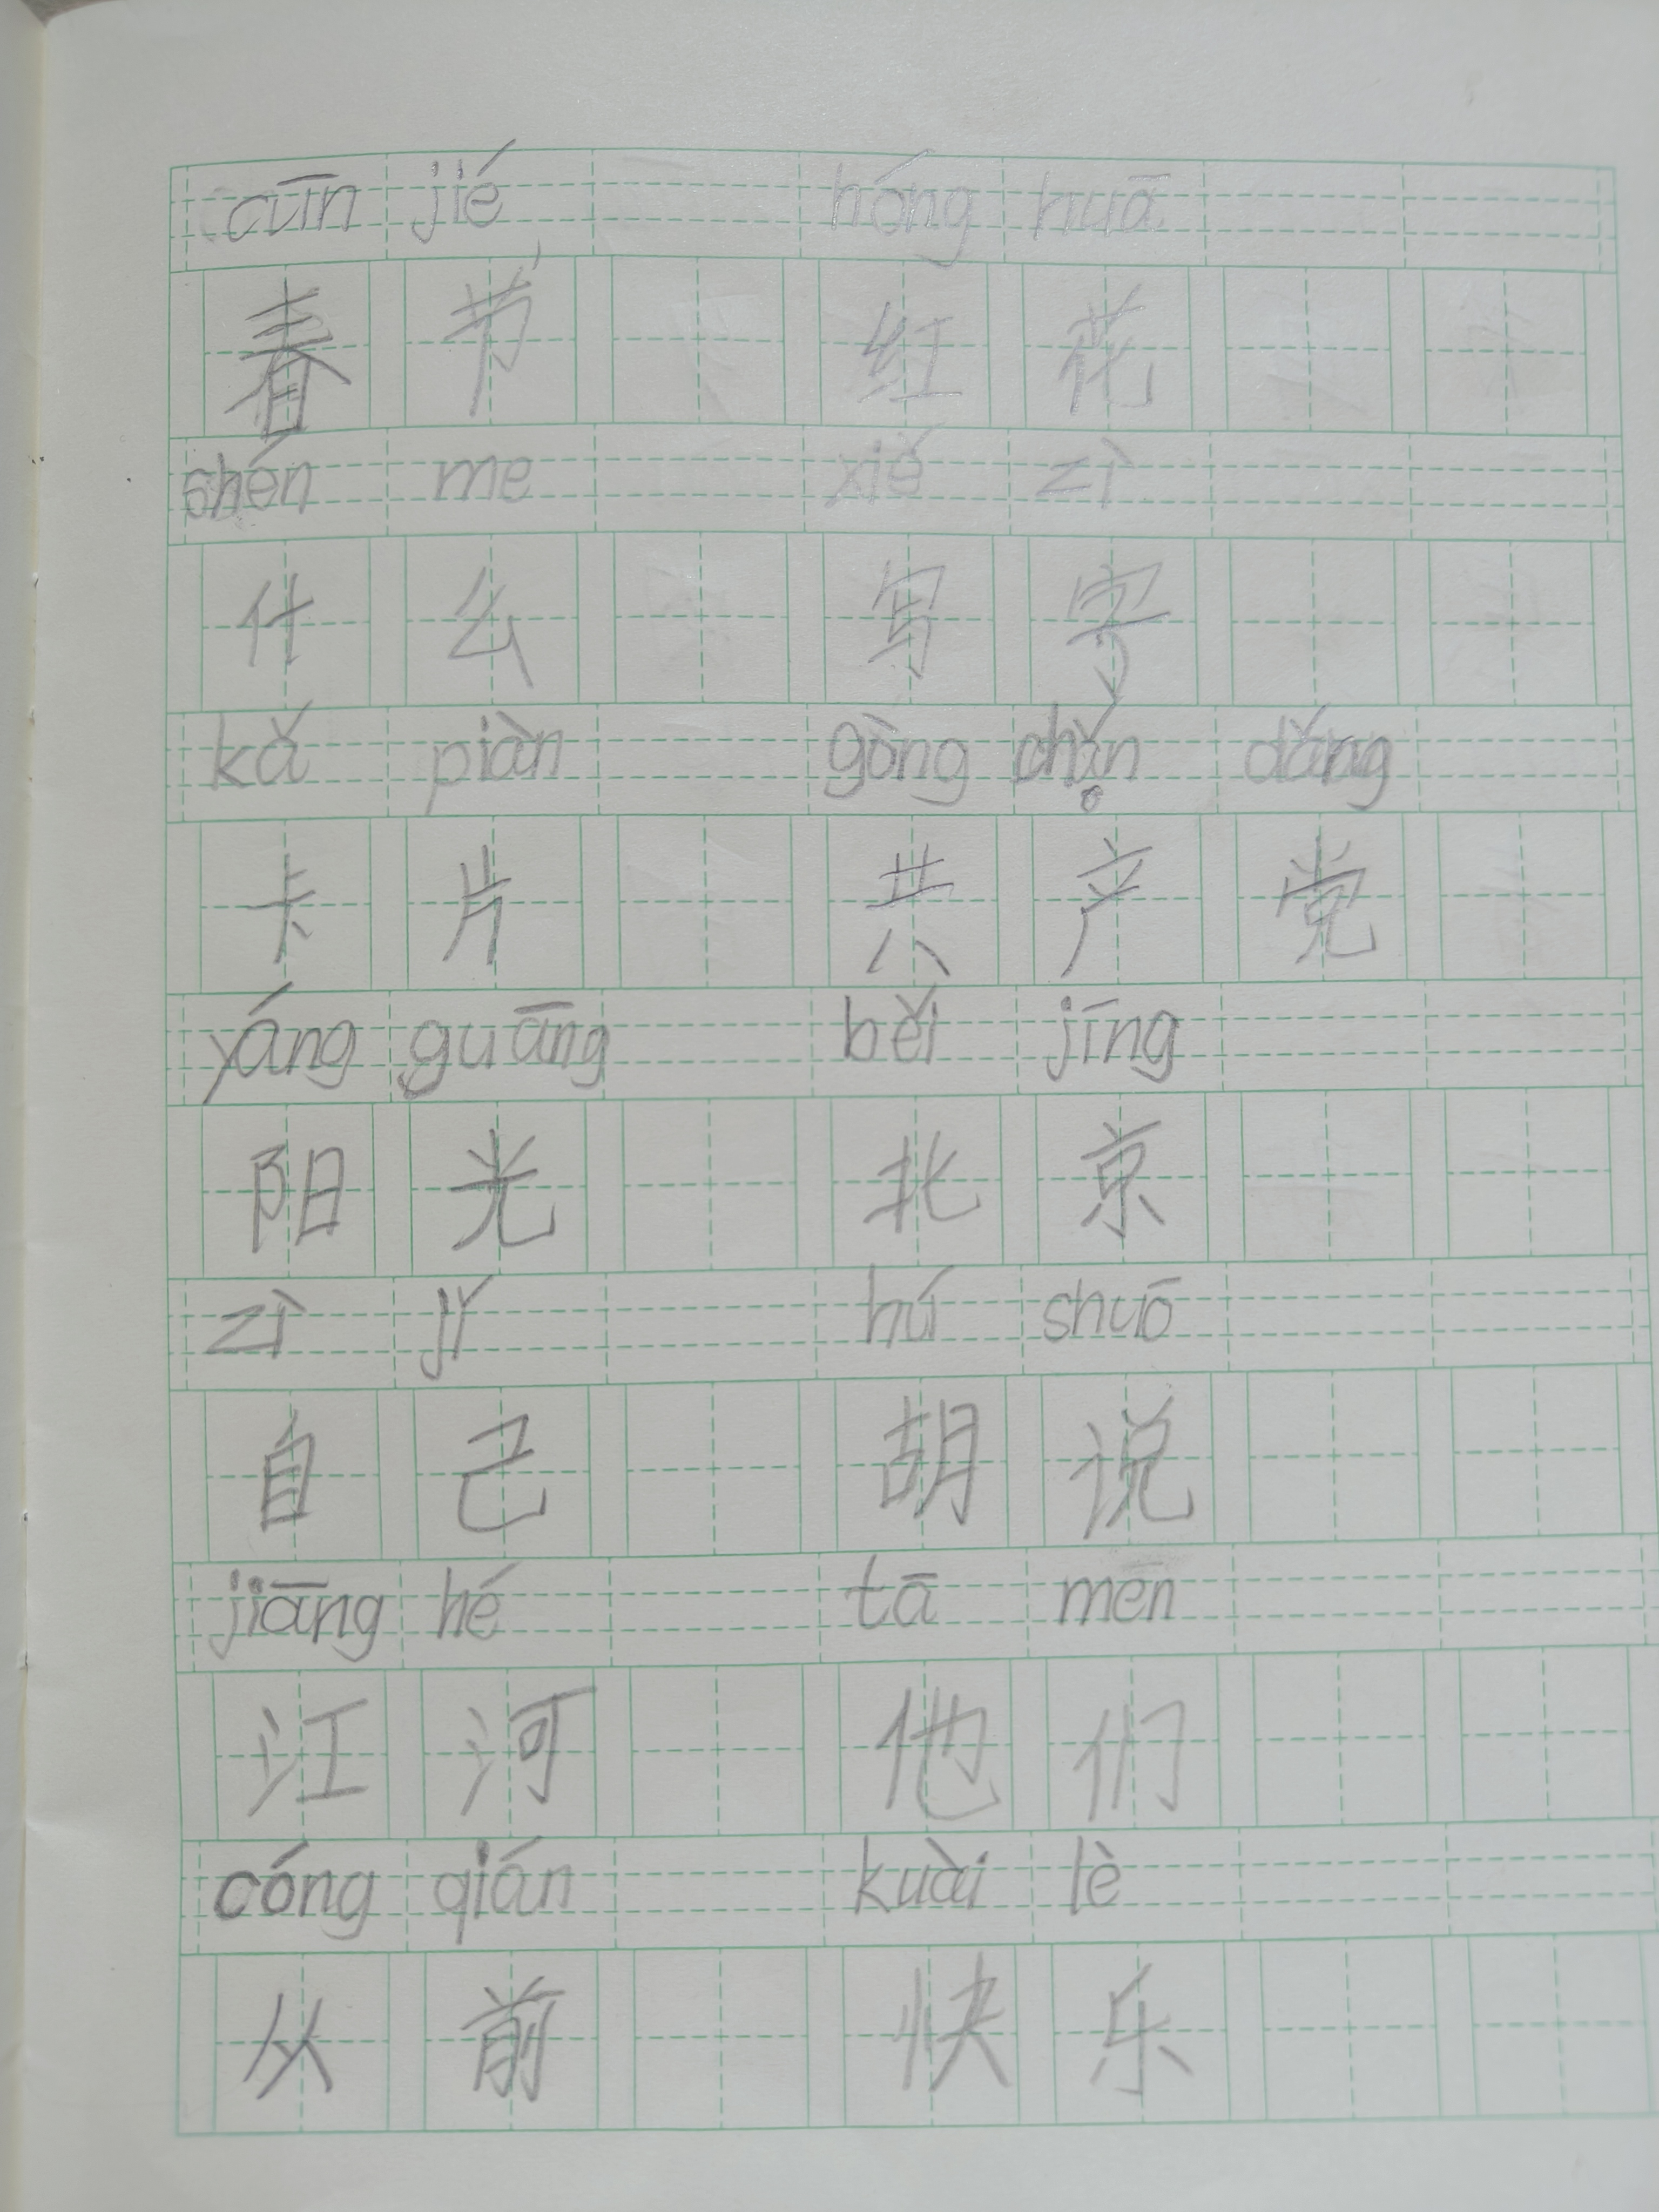 cūn jié hóng huā
春 节 红 花
shén me xiě zì
什 么 写 字
kǎ piàn gòng chǎn dǎng
卡 片 共 产 党
yáng guāng běi jīng
阳 光 北 京
zì jǐ hú shuō
自 己 胡 说
jiāng hé tā mēn
江 河 他 们
cóng qián kuài lè
从 前 快 乐